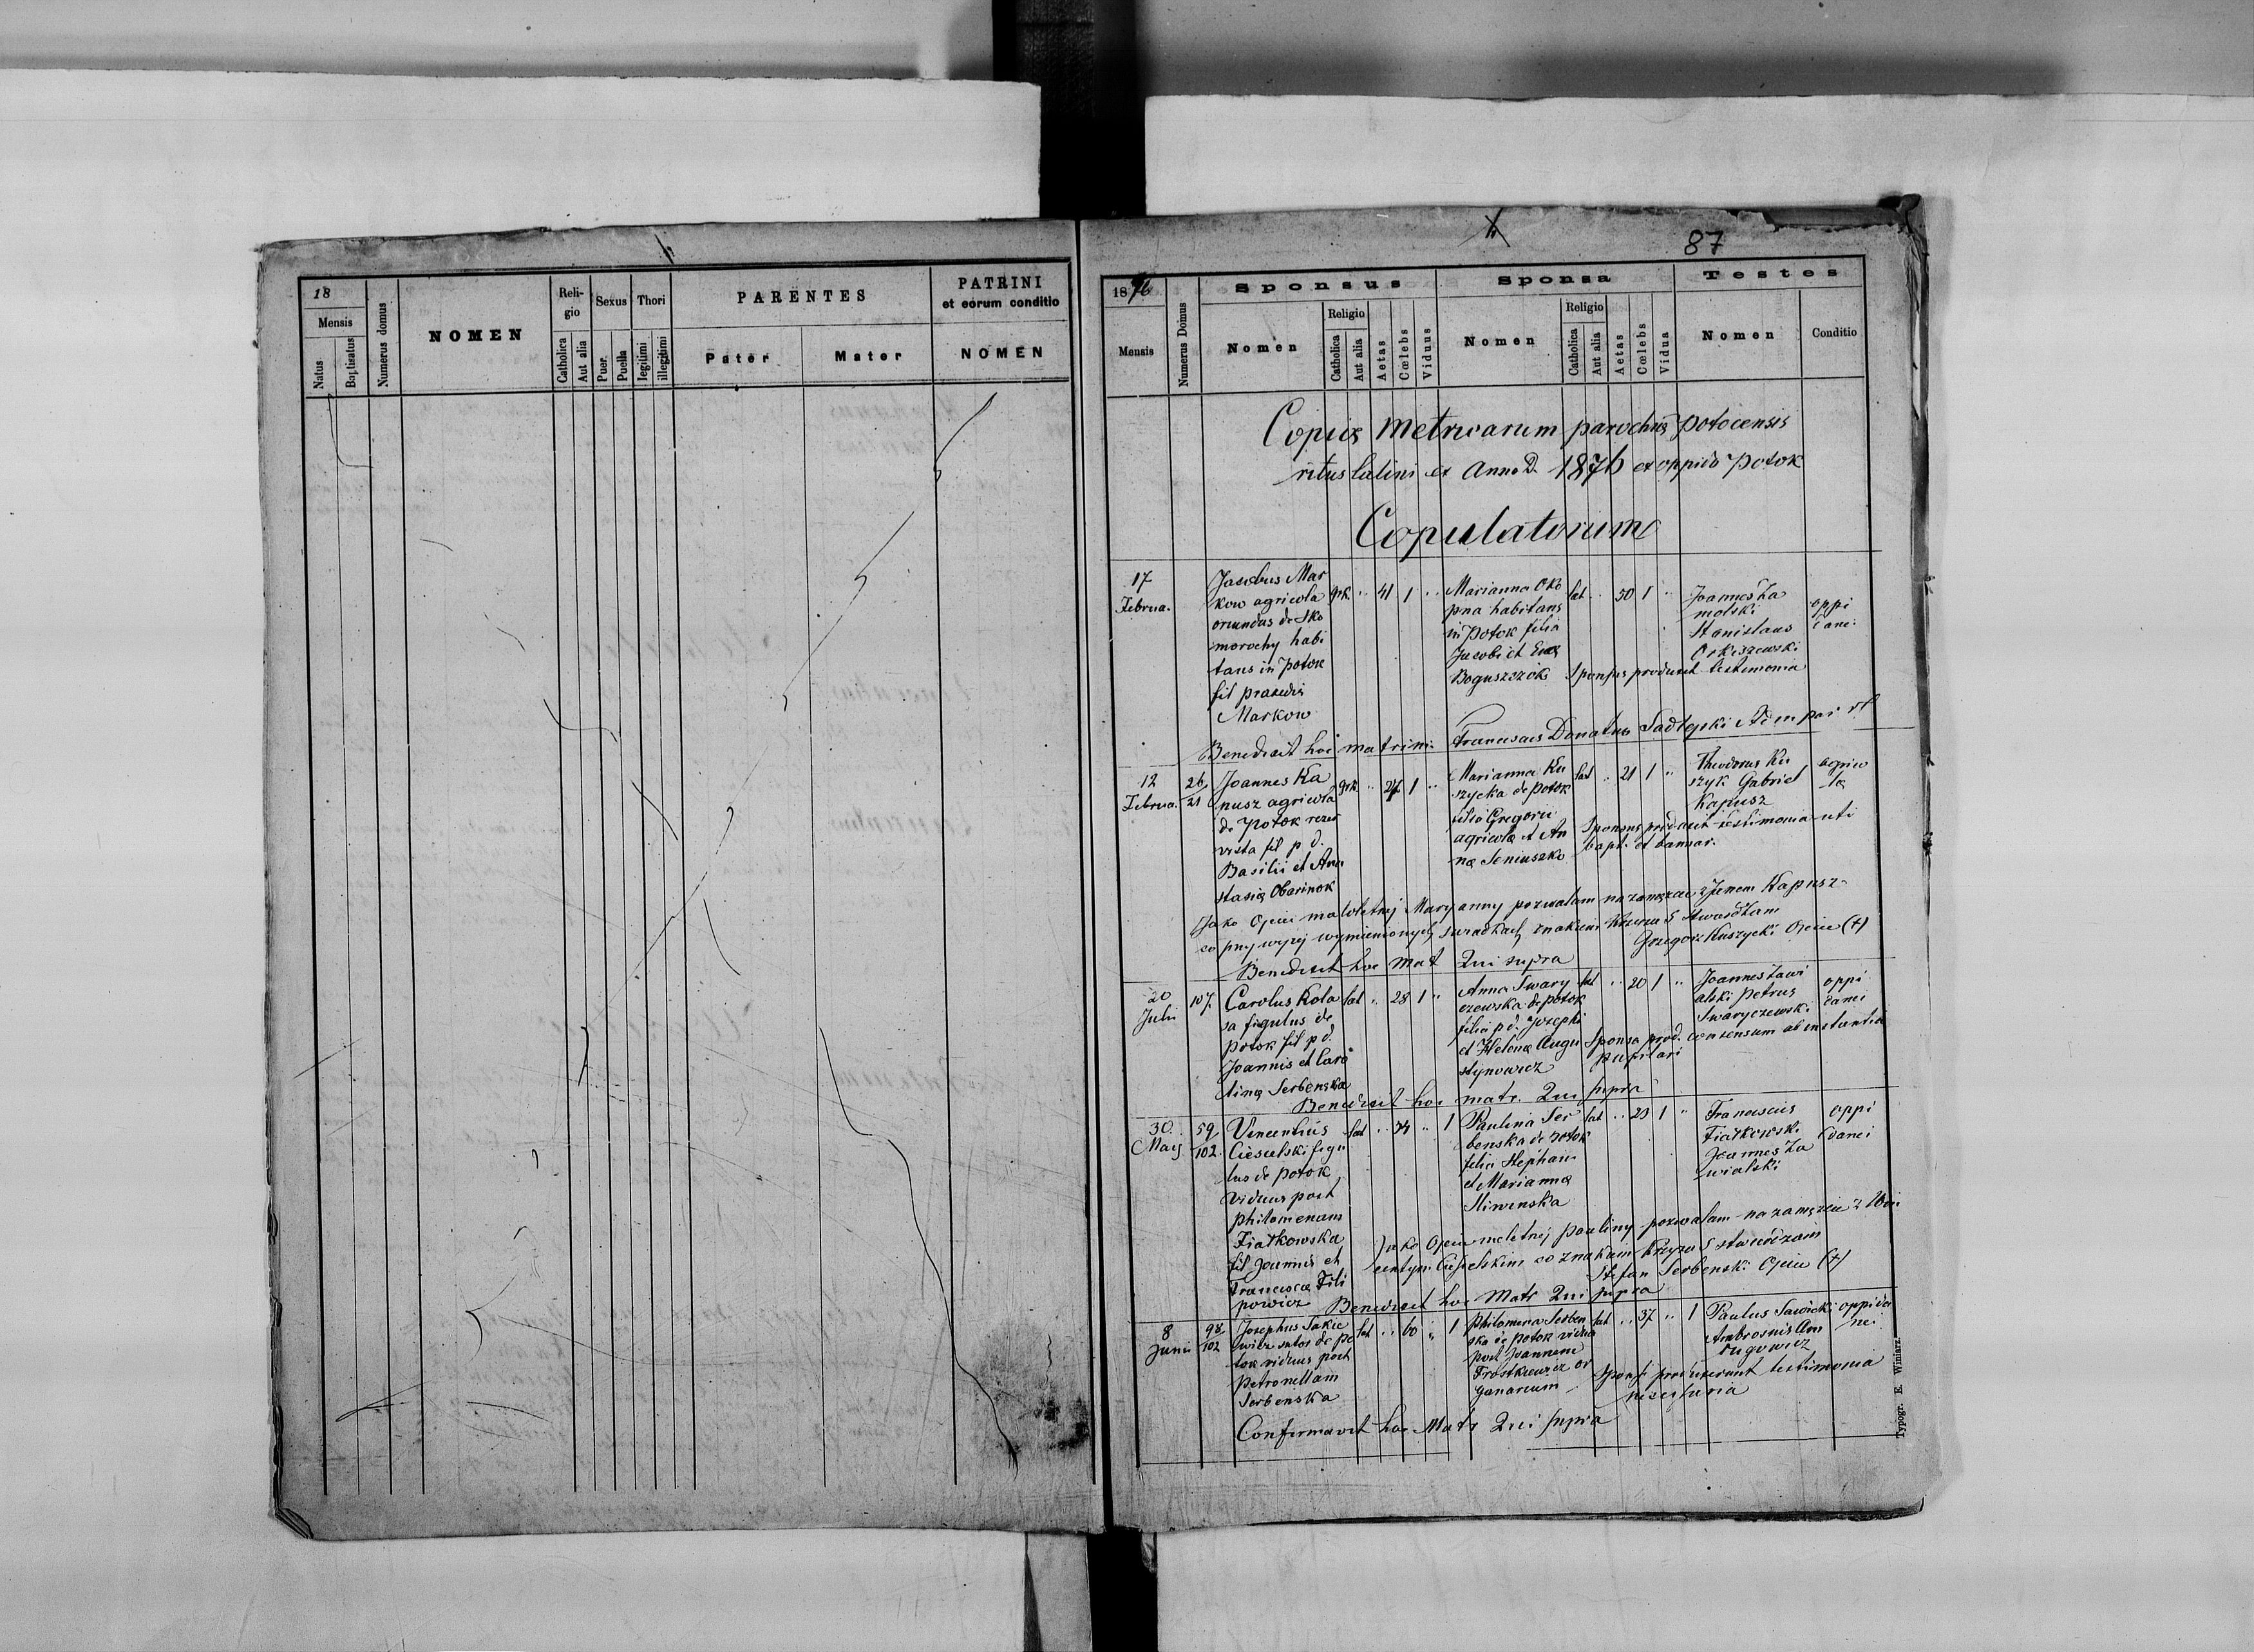 18
Mensis
Natus
Baptisatus
Numerus domus
NOMEN
Reli-
gio
Catholica
Aut alia
Sexus
Puer.
Puella
Thori
legitimi
illegitimi
PARENTES
Pater
Mater
PATRINI
et eorum conditio
NOMEN
87
1876
Mensis
Numerus Domus
Sponsus
Nomen
Religio
Catholica
Aut alia
Aetas
Cœlebs
Viduus
Sponsa
Nomen
Religio
Catholica
Aut alia
Aetas
Cœlebs
Vidua
Testes
Nomen
Conditio
Copia Metricarum parochia potocensis
ritus latini et Anno D. 1876 ex oppido Potok
Copulatorum
17
Februa.
Jacobus Mar
kow agricola
oriundus de Sko
morochy habi
tans in Potok
fil praxedis
Markow
grk. " 41 1 "
Marianna Oko
pna habitans
in Potok filia
Jacobi et Eva
Boguszczok
lat " 30 1 "
Joannes Za
molski
Stanislaus
Orkiszewski
oppi
dane.
Sponsus produxit testimonia
Benedixit hoc matrim. Franciscus Donatus Sadlejski Adm par rl
12
Februa.
26
21
Joannes Ka
nusz agricola
de Potok rezer
vista fil p d.
Basilii et Ana
stasia Obarinok
grk. " 27 1 "
Marianna Ku
szycka de Potok
filia Gregorii
agricola et An
na Seniuszko
lat " 21 1 "
Theodorus Ku
szyk Gabriel
Kapusz
agrico
la
Sponsus produxit testimonia uti
bapt. et bannor.
Jako Ojciec małoletnej Maryanny pozwalam na zamęzcie z Janem Kapusz
co przy wyżej wymienionych swiadkach znakiem Krzyza S stwardzam
Grzegorz Kuszycki Ojciec (+)
Benedixit hoc Mat Qui supra
20
Julii
107.
Carolus Kola
sa figulus de
Potok fil p d.
Joannis et Caro
lina Serbenska
lat " 28 1 "
Anna Swary
czewska de potok
filia p d. Josephi
et Helena Augu
stynowicz
lat " 20 1 "
Joannes Zawi
alski Petrus
Swaryczewski
oppi
danei
Sponsa prod. consensum ab instantia
pupilari
Benedixit hoc matr. Qui supra
30.
Maij
59
102.
Vincentius
Ciesielski figu
lus de potok
viduus post
philomenam
Fiałkowska
fil Joannis et
Francisca Fili
powicz
lat " 34 " 1
Paulina Ser
benska de Potok
filia Stephani
et Marianna
Sliwenska
lat " 23 1 "
Franciscus
Fiałkowski
Joannes Za
wialski
oppi
danei
Jako Ojciec meletnej Pauliny pozwalam na zamęzcie z Win
centym Ciesielskim co znakiem Krzyza S stwierdzam
Stefan Serbenski Ojciec (+)
Benedixit hoc Matr Qui supra
8
Junii
98
102
Josephus Sakie
wicz sutor de po
tok viduus post
Petronellam
Serbenska
lat " 60 " 1
Philomena Serben
ska de Potok vidua
post Joannem
Froskiewicz or
ganarium
lat " 37 " 1
Paulus Sawicki
Ambrosius Am
rugowicz
oppida
nei
Sponsi produxerunt testimonia
necessaria
Confirmavit hoc Matr Qui supra
Typogr. E. Winiarz.